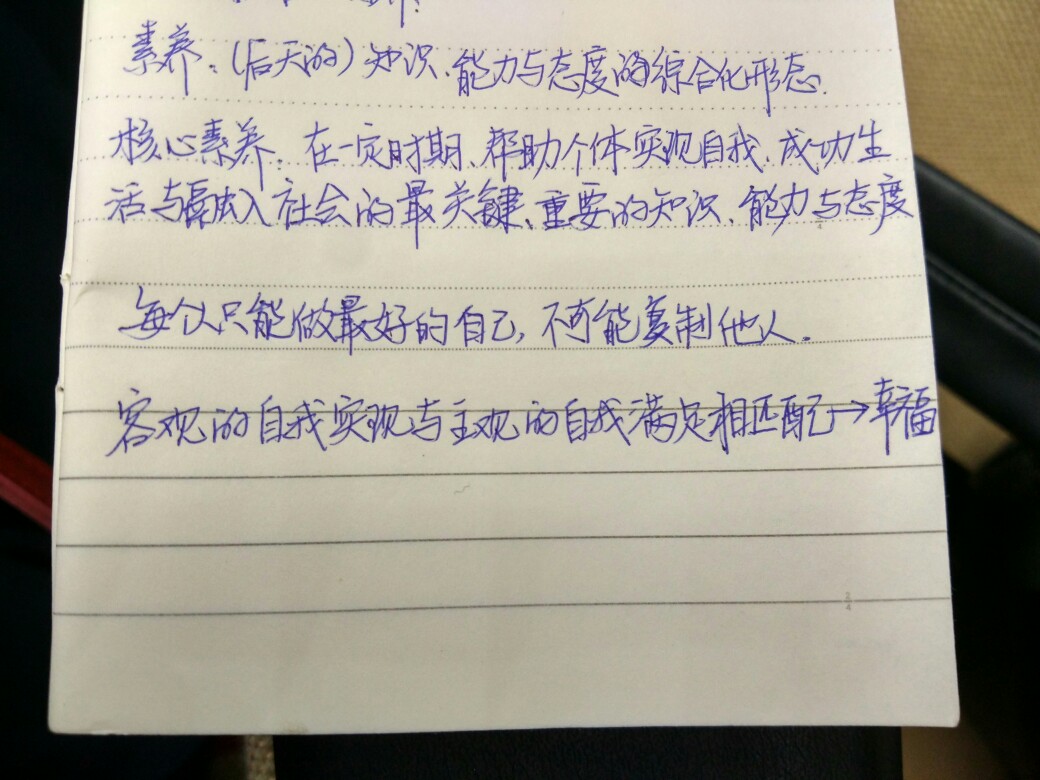 素养：(后天的）知识、能力与态度的综合化形态.
核心素养：在一定时期、帮助个体实现自我、成功生
活与融入社会的最关键、重要的知识、能力与态度
每个人只能做最好的自己，不可能复制他人.
客观的自我实现与主观的自我满足相匹配→幸福
2/4